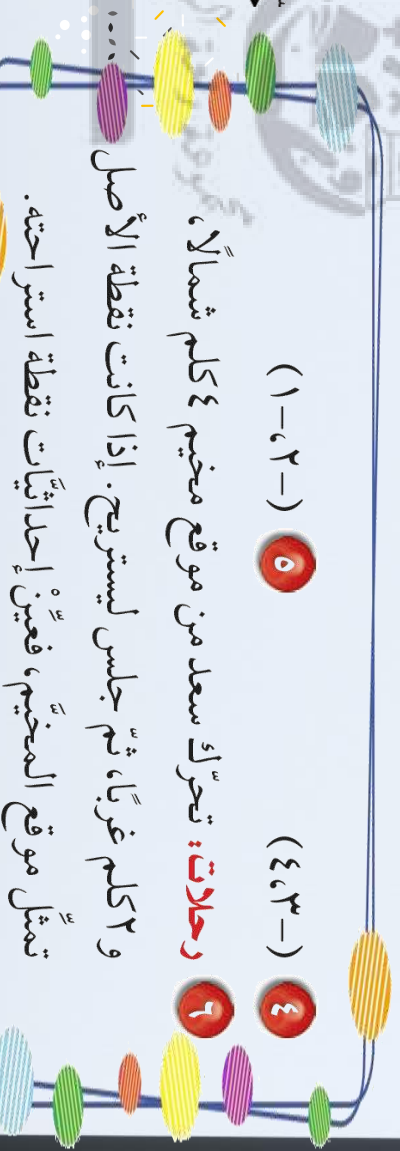 ٤ (-٣، ٤) ٥ (-٢، -١)
٦ رحلات: تحرّك سعد من موقع مخيم ٤ كلم شمالًا،
و٢ كلم غربًا، ثمّ جلس ليستريح. إذا كانت نقطة الأصل
تمثّل موقع المخيَّم، فعيّنْ إحداثيَّات نقطة استراحته.